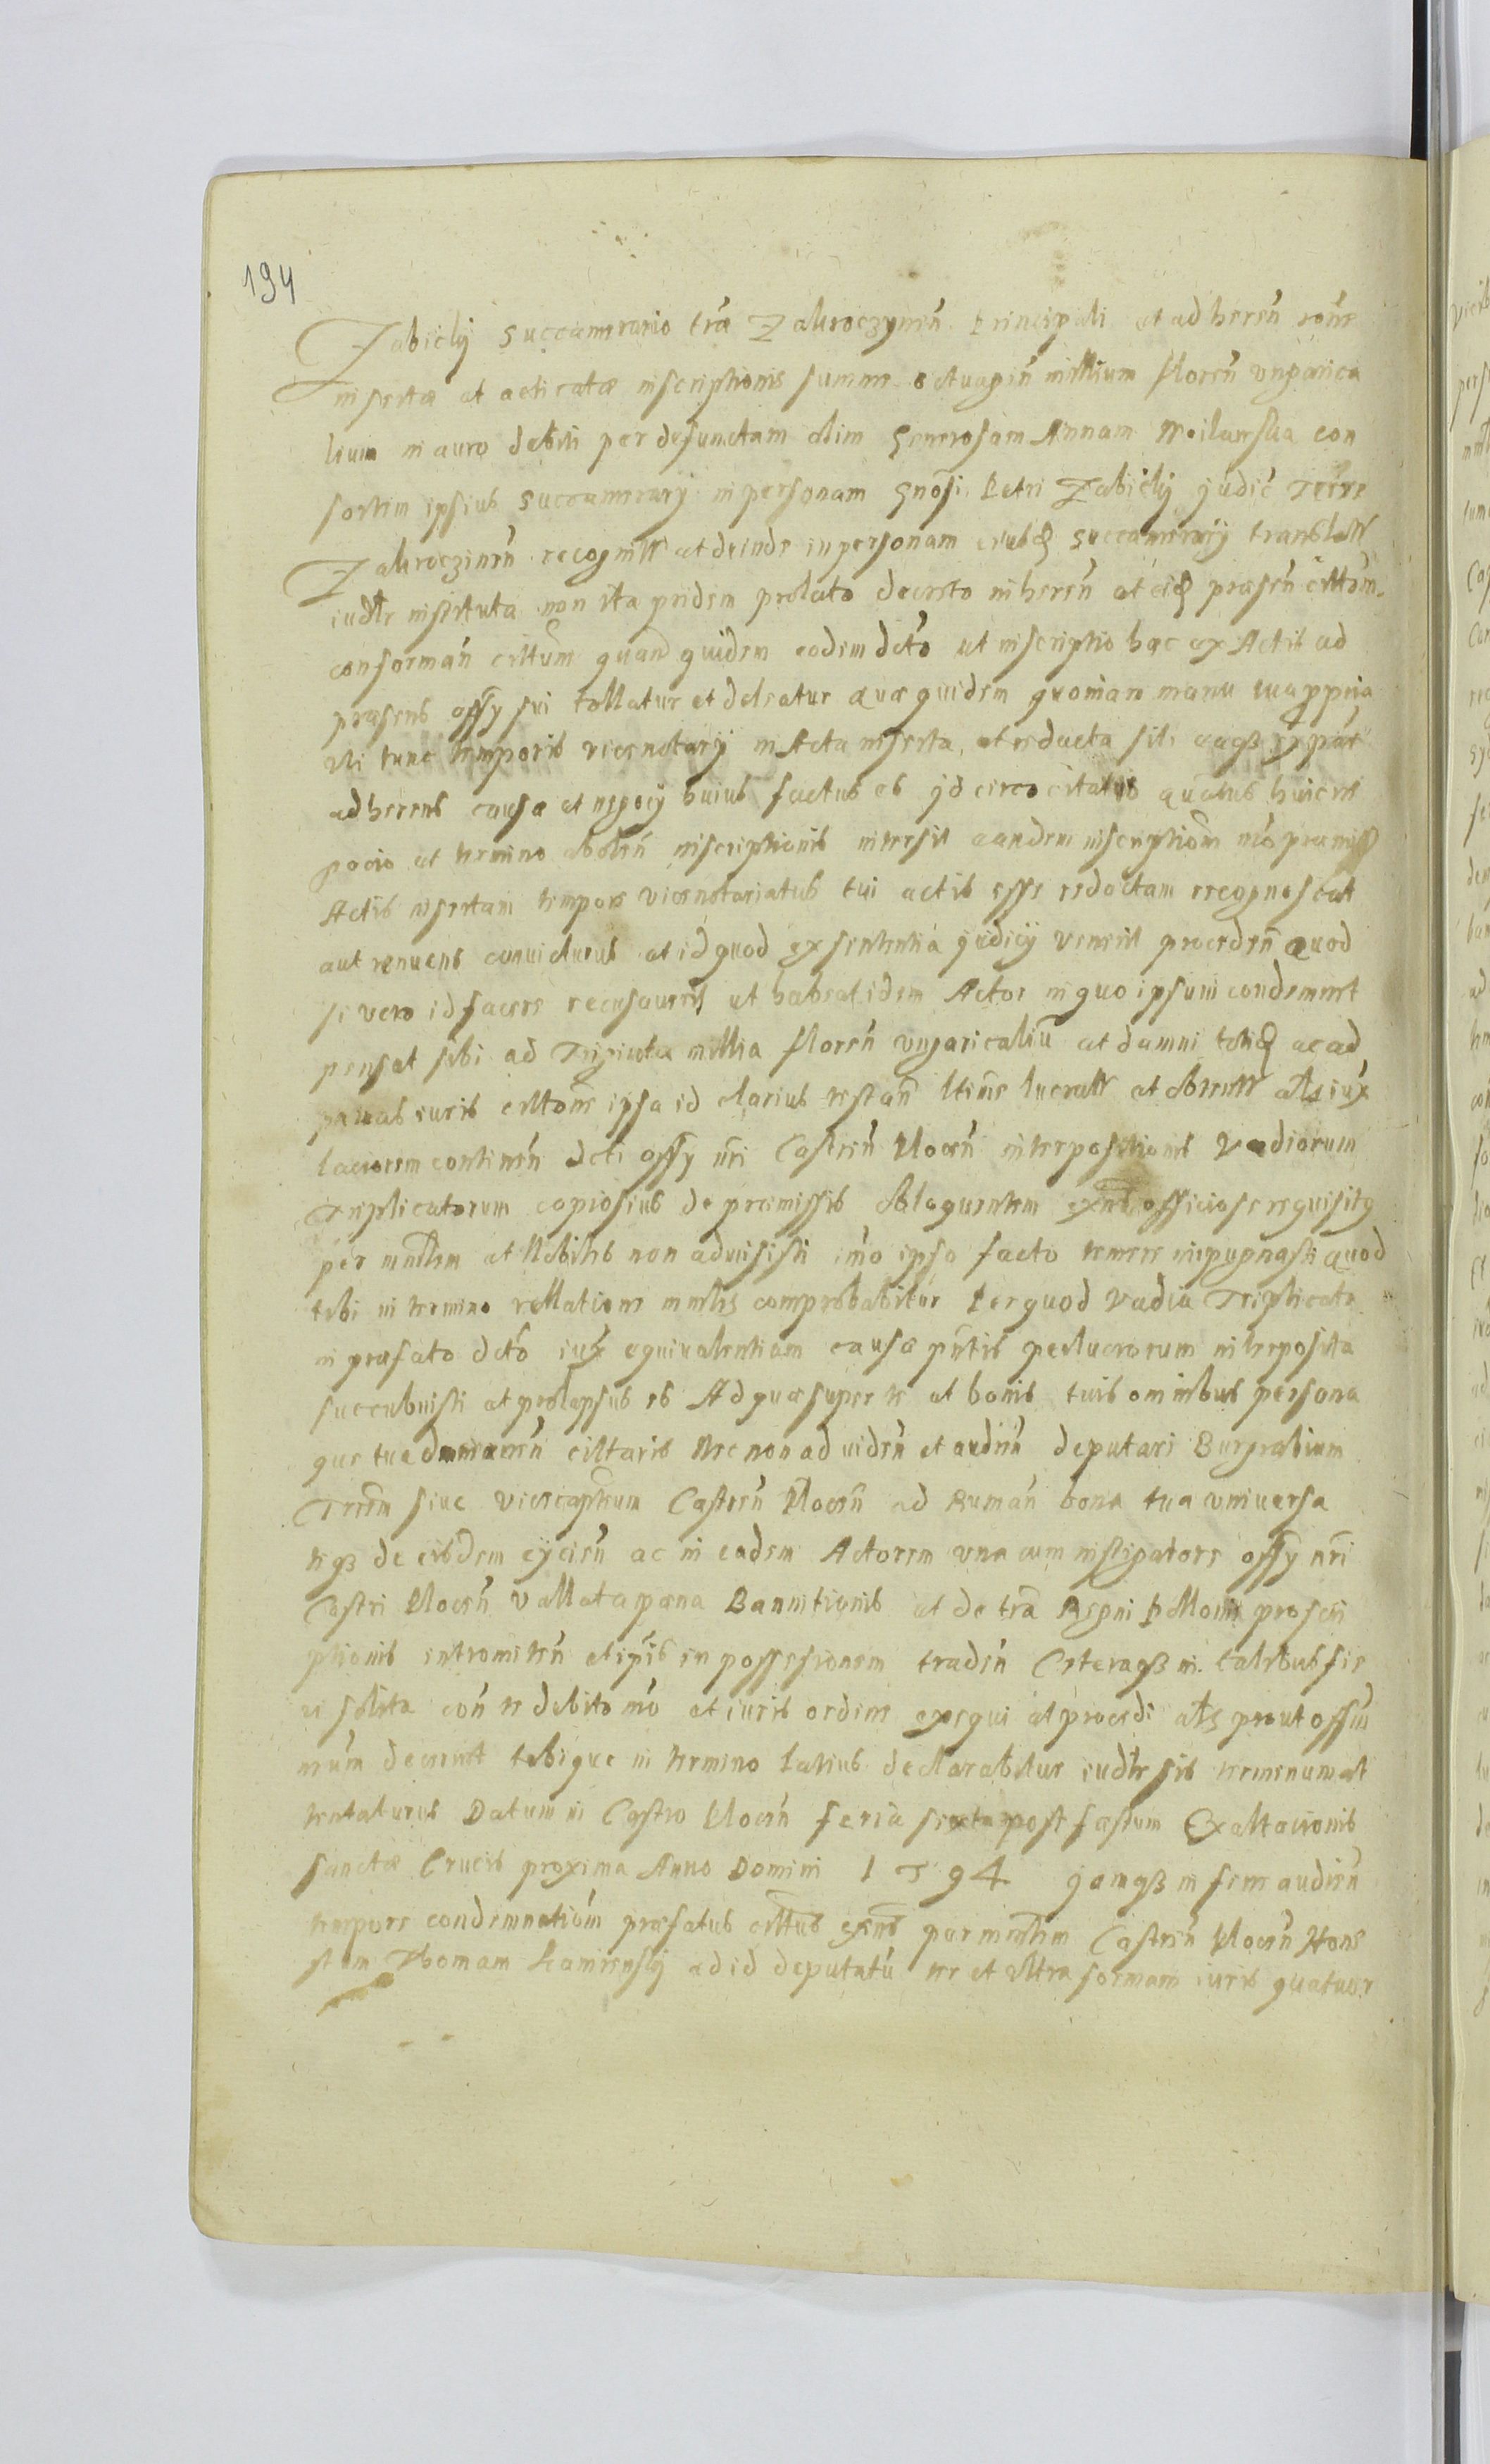 194
Zabicky Succamerario trã Zakroczymeñ Principali et adhereñ rõne
insertæ et acticatæ inscriptionis summe octuagiñ millium floreñ ungarica
lium in auro debiti per defunctam olim Generosam Annam con
sortem ipsius Succamerary in personam Gnõsi Petri Zabicky judic Terre
Zakroczineñ recognitt et deinde in personam eiusd Succamerary translatt
iudtr instituta non ita pridem prolato decreto inhereñ et eid præseñ cittõm
conformañ cittum quand quidem eodem dcto ut inscriptio hæc ex Actis ad
præsens offy sui tollatur et deleatur quæ quidem quoniam manu tua ppria
uti tunc temporis vicenotary in Acta inserta et redacta sit eaqz
adherens causæ et negocy huius factus es jd circo citatus quatus huic ne
gocio et termino aboleñ inscriptionis intersit eandem inscriptiom mõ præmiss
Actis insertam tempore vicenotariatus tui actis esse redactam recognoscat
aut renuens convicturus et id quod ex sententia judicy venerit procedeñ quod
si vero id facere recusaverit ut habeat idem Actor in quo ipsum condemnet
pensat sibi ad Triginta millia floreñ ungaricaliũ et damni totid ac ad
pænas iuris cittone ipsa id clarius testañ ltime lucratt et obtentt als iux
laciorem contineñ dcti offy nri Castreñ Ploceñ interpositionis Vadiorum
Triplicatorum copiosius de præmissis obloquentem exns officiose requisity
per mnstrm et Nobiles non admisisti imo ipso facto temere impugnasti quod
tibi in termino rellatione mnlis comprobabitur Per quod Vadia Triplicata
in præfato dcto iux equivalentiam causæ pntis perlucrorum interposita
succubuisti et prolapsus es Ad quæ super te et bonis tuis omnibus persona
que tue citaris Nec non ad videñ et audieñ deputari Burgrabium
Trrem sive vicecaptneum Castreñ Ploceñ ad Rumañ bona tua universa
teqz de eisdem eycieñ ac in eadem Actorem una cum instigatore offy nri
Castri Ploceñ vallata pæna Bannitionis et de trã Regni Pollonie proscri
ptionis intromiteñ et ipis in possesionem tradeñ Ceteraqz in talibus fie
ri solita coñ te debito mõ et iuris ordine exequi et procedi als prout offiu
nrum decernet tibique in termino latius declarabitur iudtr sis terminum at
tentaturus Datum in Castro Ploceñ feria sexta post fæstum Exaltacionis
Sanctæ Crucis proxima Anno Domini 1594 jamqz in fine audieñ
tempore condemnatiom præfatus cittus exns per mnistrm Castreñ Ploceñ Hone
stum Thomam Kamiensky ad id deputatũ ter et ultra formam iuris quatuor